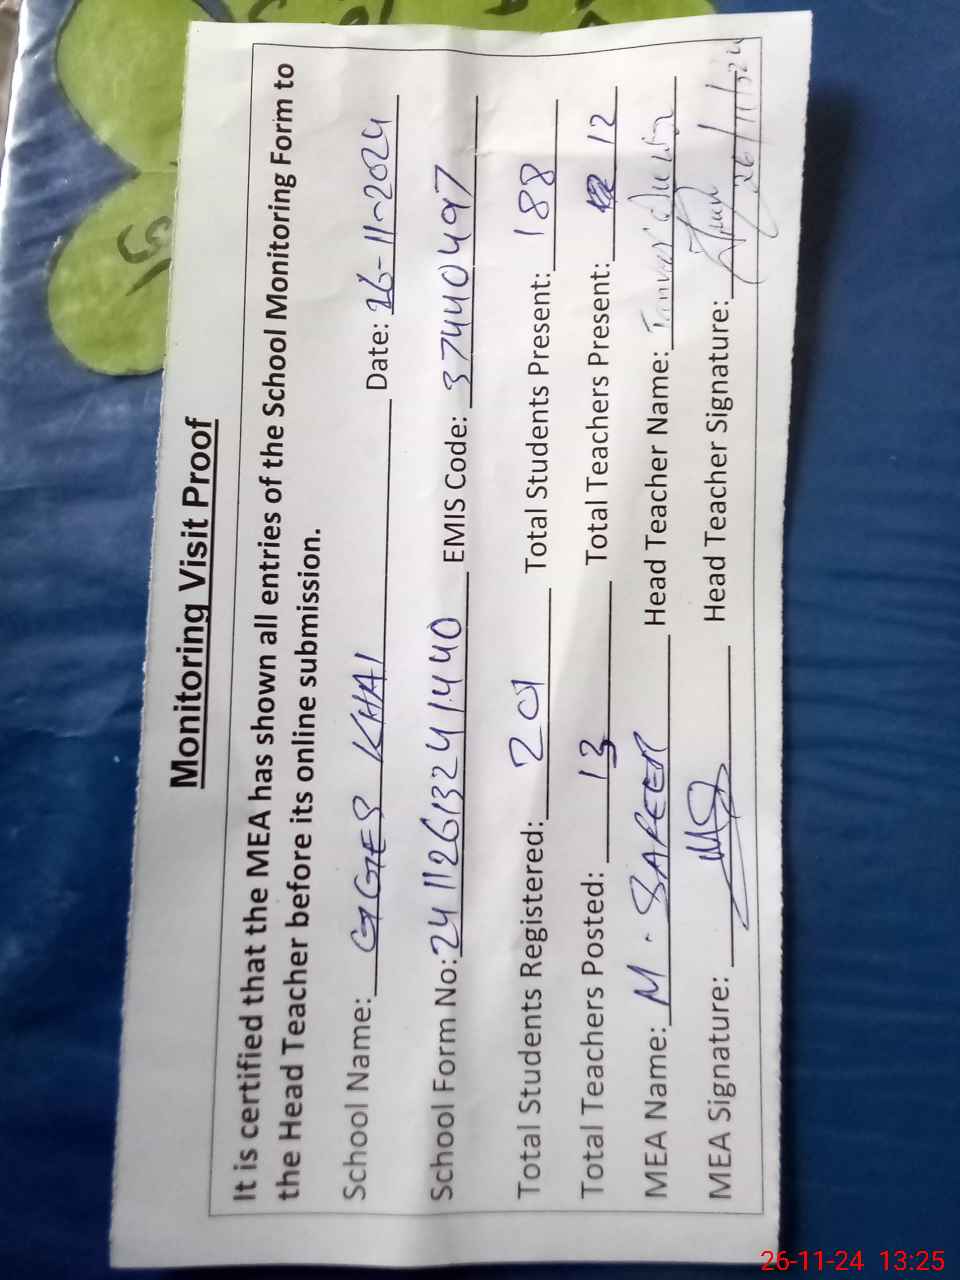 Monitoring Visit Proof
It is certified that the MEA has shown all entries of the School Monitoring Form to
the Head Teacher before its online submission.
School Name: GGES KHAI Date: 26-11-2024
School Form No: 24112613241440 EMIS Code: 37440497
Total Students Registered: 201 Total Students Present: 188
Total Teachers Posted: 13 Total Teachers Present: 12
MEA Name: M. SAFEER Head Teacher Name:
MEA Signature: Head Teacher Signature:
26/11/2024
26-11-24 13:25